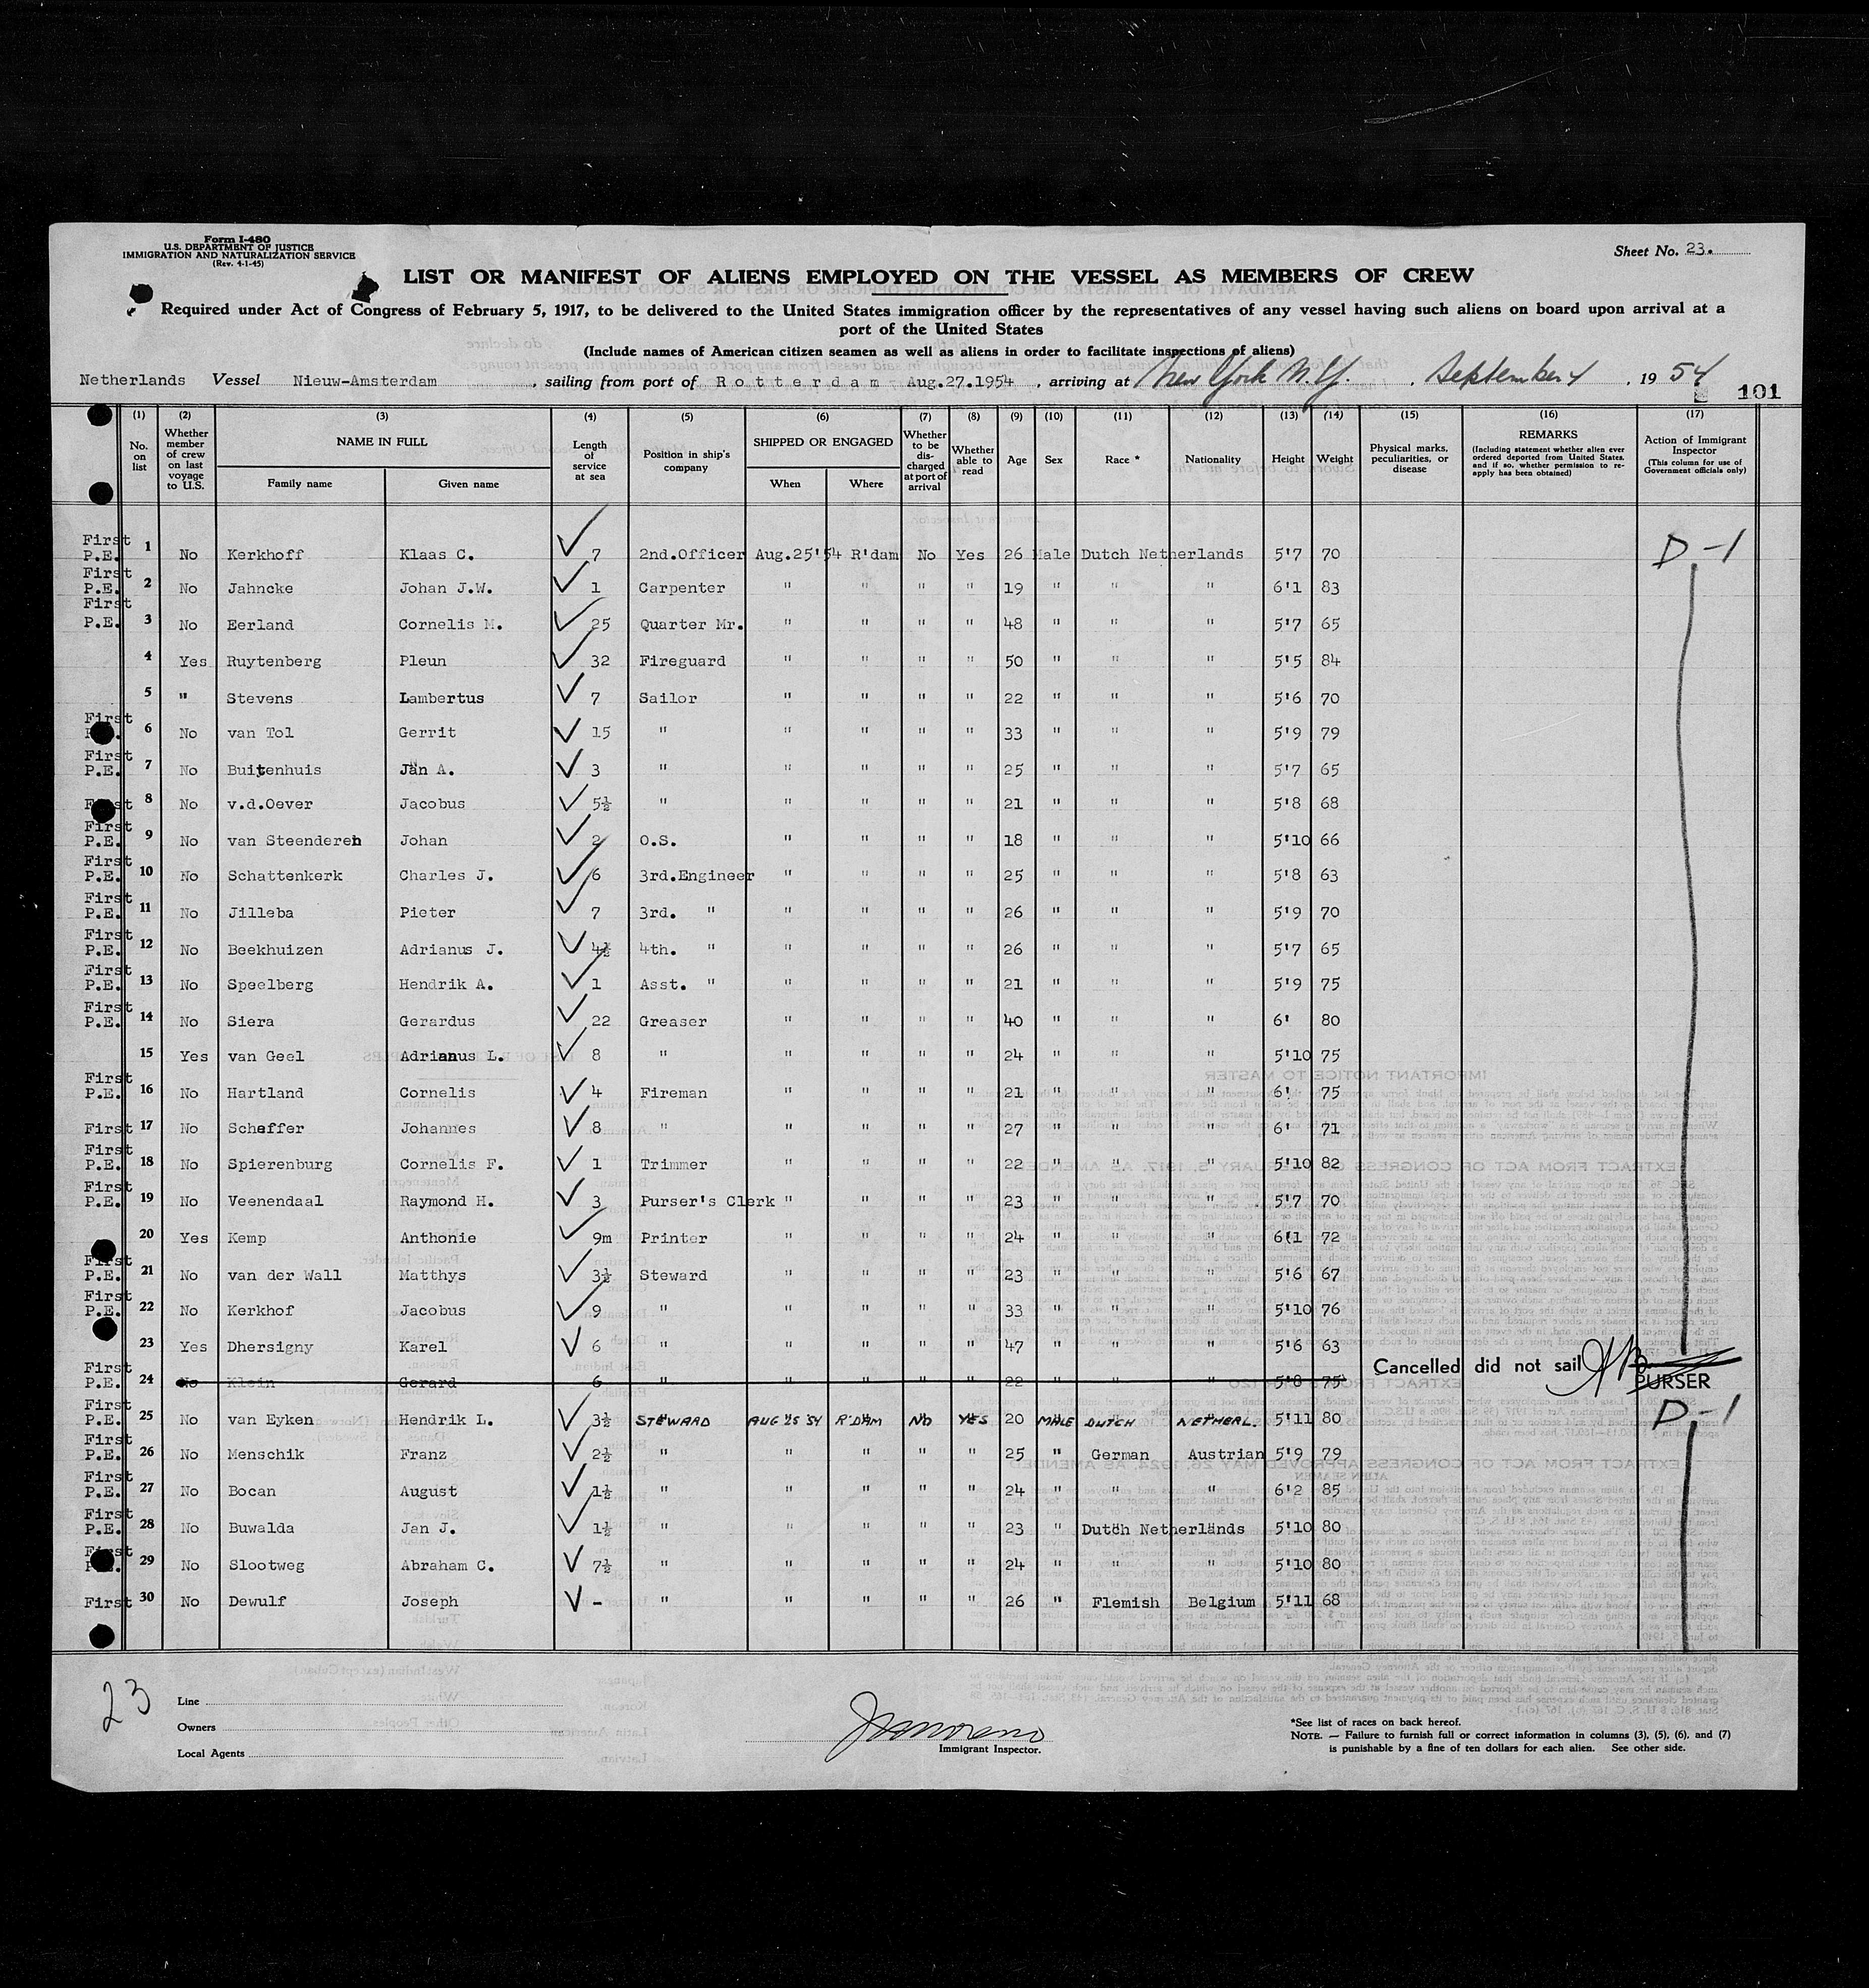 Form I-480
U.S. DEPARTMENT OF JUSTICE
IMMIGRATION AND NATURALIZATION SERVICE
(Rev. 4-1-45)
Sheet No. 23.
LIST OR MANIFEST OF ALIENS EMPLOYED ON THE VESSEL AS MEMBERS OF CREW
Required under Act of Congress of February 5, 1917, to be delivered to the United States immigration officer by the representatives of any vessel having such aliens on board upon arrival at a
port of the United States
(Include names of American citizen seamen as well as aliens in order to facilitate inspections of aliens)
Netherlands Vessel Nieuw-Amsterdam, sailing from port of Rotterdam - Aug.27.1954, arriving at New York N.Y., September 4, 19 54
101
(1) (2) (3) (4) (5) (6) (7) (8) (9) (10) (11) (12) (13) (14) (15) (16) (17)
No. on list
Whether member of crew on last voyage to U.S.
NAME IN FULL
Family name Given name
Length of service at sea
Position in ship's company
SHIPPED OR ENGAGED
When Where
Whether to be dis-charged at port of arrival
Whether able to read
Age Sex Race * Nationality Height Weight
Physical marks, peculiarities, or disease
REMARKS
(Including statement whether alien ever ordered deported from United States, and if so, whether permission to re-apply has been obtained)
Action of Immigrant Inspector
(This column for use of Government officials only)
First P.E. 1 No Kerkhoff Klaas C. 7 2nd.Officer Aug.25'54 R'dam No Yes 26 Male Dutch Netherlands 5'7 70 D-1
First P.E. 2 No Jahncke Johan J.W. 1 Carpenter " " " " 19 " " " 6'1 83
First P.E. 3 No Eerland Cornelis M. 25 Quarter Mr. " " " " 48 " " " 5'7 65
4 Yes Ruytenberg Pleun 32 Fireguard " " " " 50 " " " 5'5 84
5 " Stevens Lambertus 7 Sailor " " " " 22 " " " 5'6 70
First 6 No van Tol Gerrit 15 " " " " " 33 " " " 5'9 79
First P.E. 7 No Buitenhuis Jan A. 3 " " " " " 25 " " " 5'7 65
First 8 No v.d.Oever Jacobus 5½ " " " " " 21 " " " 5'8 68
First P.E. 9 No van Steenderen Johan 2 O.S. " " " " 18 " " " 5'10 66
First P.E. 10 No Schattenkerk Charles J. 6 3rd.Engineer " " " " 25 " " " 5'8 63
First P.E. 11 No Jilleba Pieter 7 3rd. " " " " " 26 " " " 5'9 70
First P.E. 12 No Beekhuizen Adrianus J. 4½ 4th. " " " " " 26 " " " 5'7 65
First P.E. 13 No Speelberg Hendrik A. 1 Asst. " " " " " 21 " " " 5'9 75
First P.E. 14 No Siera Gerardus 22 Greaser " " " " 40 " " " 6' 80
15 Yes van Geel Adrianus L. 8 " " " " " 24 " " " 5'10 75
First P.E. 16 No Hartland Cornelis 4 Fireman " " " " 21 " " " 6' 75
First 17 No Scheffer Johannes 8 " " " " " 27 " " " 6' 71
First P.E. 18 No Spierenburg Cornelis F. 1 Trimmer " " " " 22 " " " 5'10 82
First P.E. 19 No Veenendaal Raymond H. 3 Purser's Clerk " " " " 23 " " " 5'7 70
20 Yes Kemp Anthonie 9m Printer " " " " 24 " " " 6'1 72
First P.E. 21 No van der Wall Matthys 3½ Steward " " " " 23 " " " 5'6 67
First P.E. 22 No Kerkhof Jacobus 9 " " " " " 33 " " " 5'10 76
23 Yes Dhersigny Karel 6 " " " " " 47 " " " 5'6 63
First P.E. 24 No Klein Gerard 6 " " " " " 22 " " " 5'8 75 Cancelled did not sail PURSER
First P.E. 25 No van Eyken Hendrik L. 3½ STEWARD AUG 25 '54 R'DAM NO YES 20 MALE DUTCH NETHERL. 5'11 80 D-1
First P.E. 26 No Menschik Franz 2½ " " " " " 25 " German Austrian 5'9 79
First P.E. 27 No Bocan August 1½ " " " " " 24 " " " 6'2 85
First P.E. 28 No Buwalda Jan J. 1½ " " " " " 23 " Dutch Netherlands 5'10 80
First 29 No Slootweg Abraham C. 7½ " " " " " 24 " " " 5'10 80
First 30 No Dewulf Joseph - " " " " " 26 " Flemish Belgium 5'11 68
23
Line
Owners
Local Agents
Immigrant Inspector.
*See list of races on back hereof.
NOTE. — Failure to furnish full or correct information in columns (3), (5), (6), and (7)
is punishable by a fine of ten dollars for each alien. See other side.